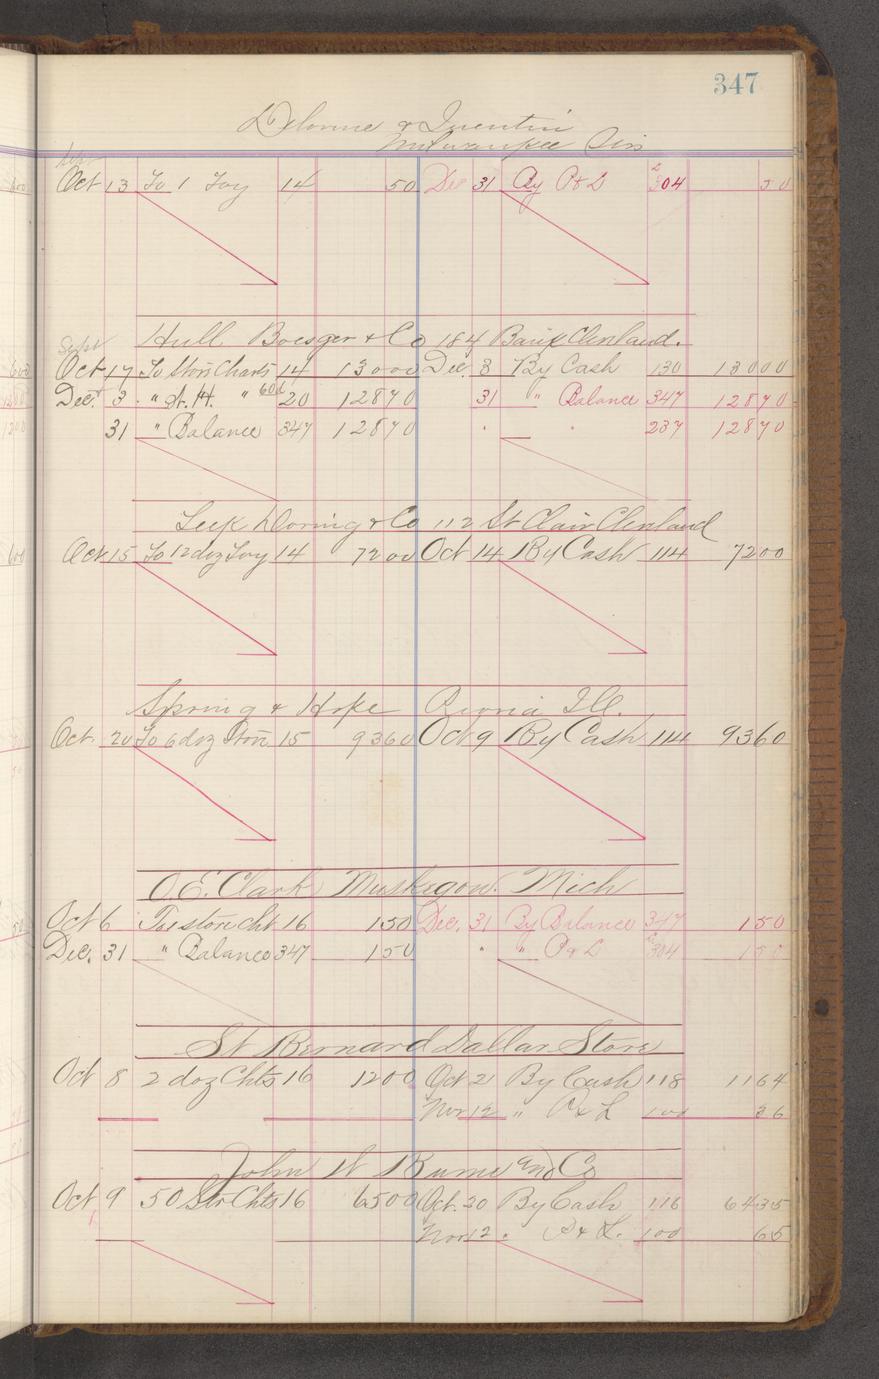 347
Delorme & Quentin
Milwaukee Wis
Sept
Oct 13 To 1 Toy 14 50 Dec 31 By P&L 304 50
Hull Boesger & Co 184 Bank Clevland.
Sept
Oct 17 To Store Charts 14 13000 Dec. 8 By Cash 130 13000
Dec. 3 " St. H. " 60d 20 12870 31 " Balance 347 12870
31 " Balance 347 12870 " " 237 12870
Leek Doring & Co 112 St Clair Clevland
Oct 15 To 12 doz Toy 14 7200 Oct 14 By Cash 114 7200
Spring & Hope Peoria Ill.
Oct. 20 To 6 doz Store 15 9360 Oct 9 By Cash 114 9360
O.E. Clark Muskegon. Mich
Oct 6 To store cht 16 150 Dec. 31 By Balance 347 150
Dec. 31 " Balance 347 150 " " P&L 304 150
St Bernard Dollar Store
Oct 8 2 doz Chts 16 1200 Oct 21 By Cash 118 1164
Nov 12 " P&L 100 36
John W Burns and Co
Oct 9 50 Str Chts 16 6500 Oct. 20 By Cash 116 6435
Nov 12 " P&L. 100 65